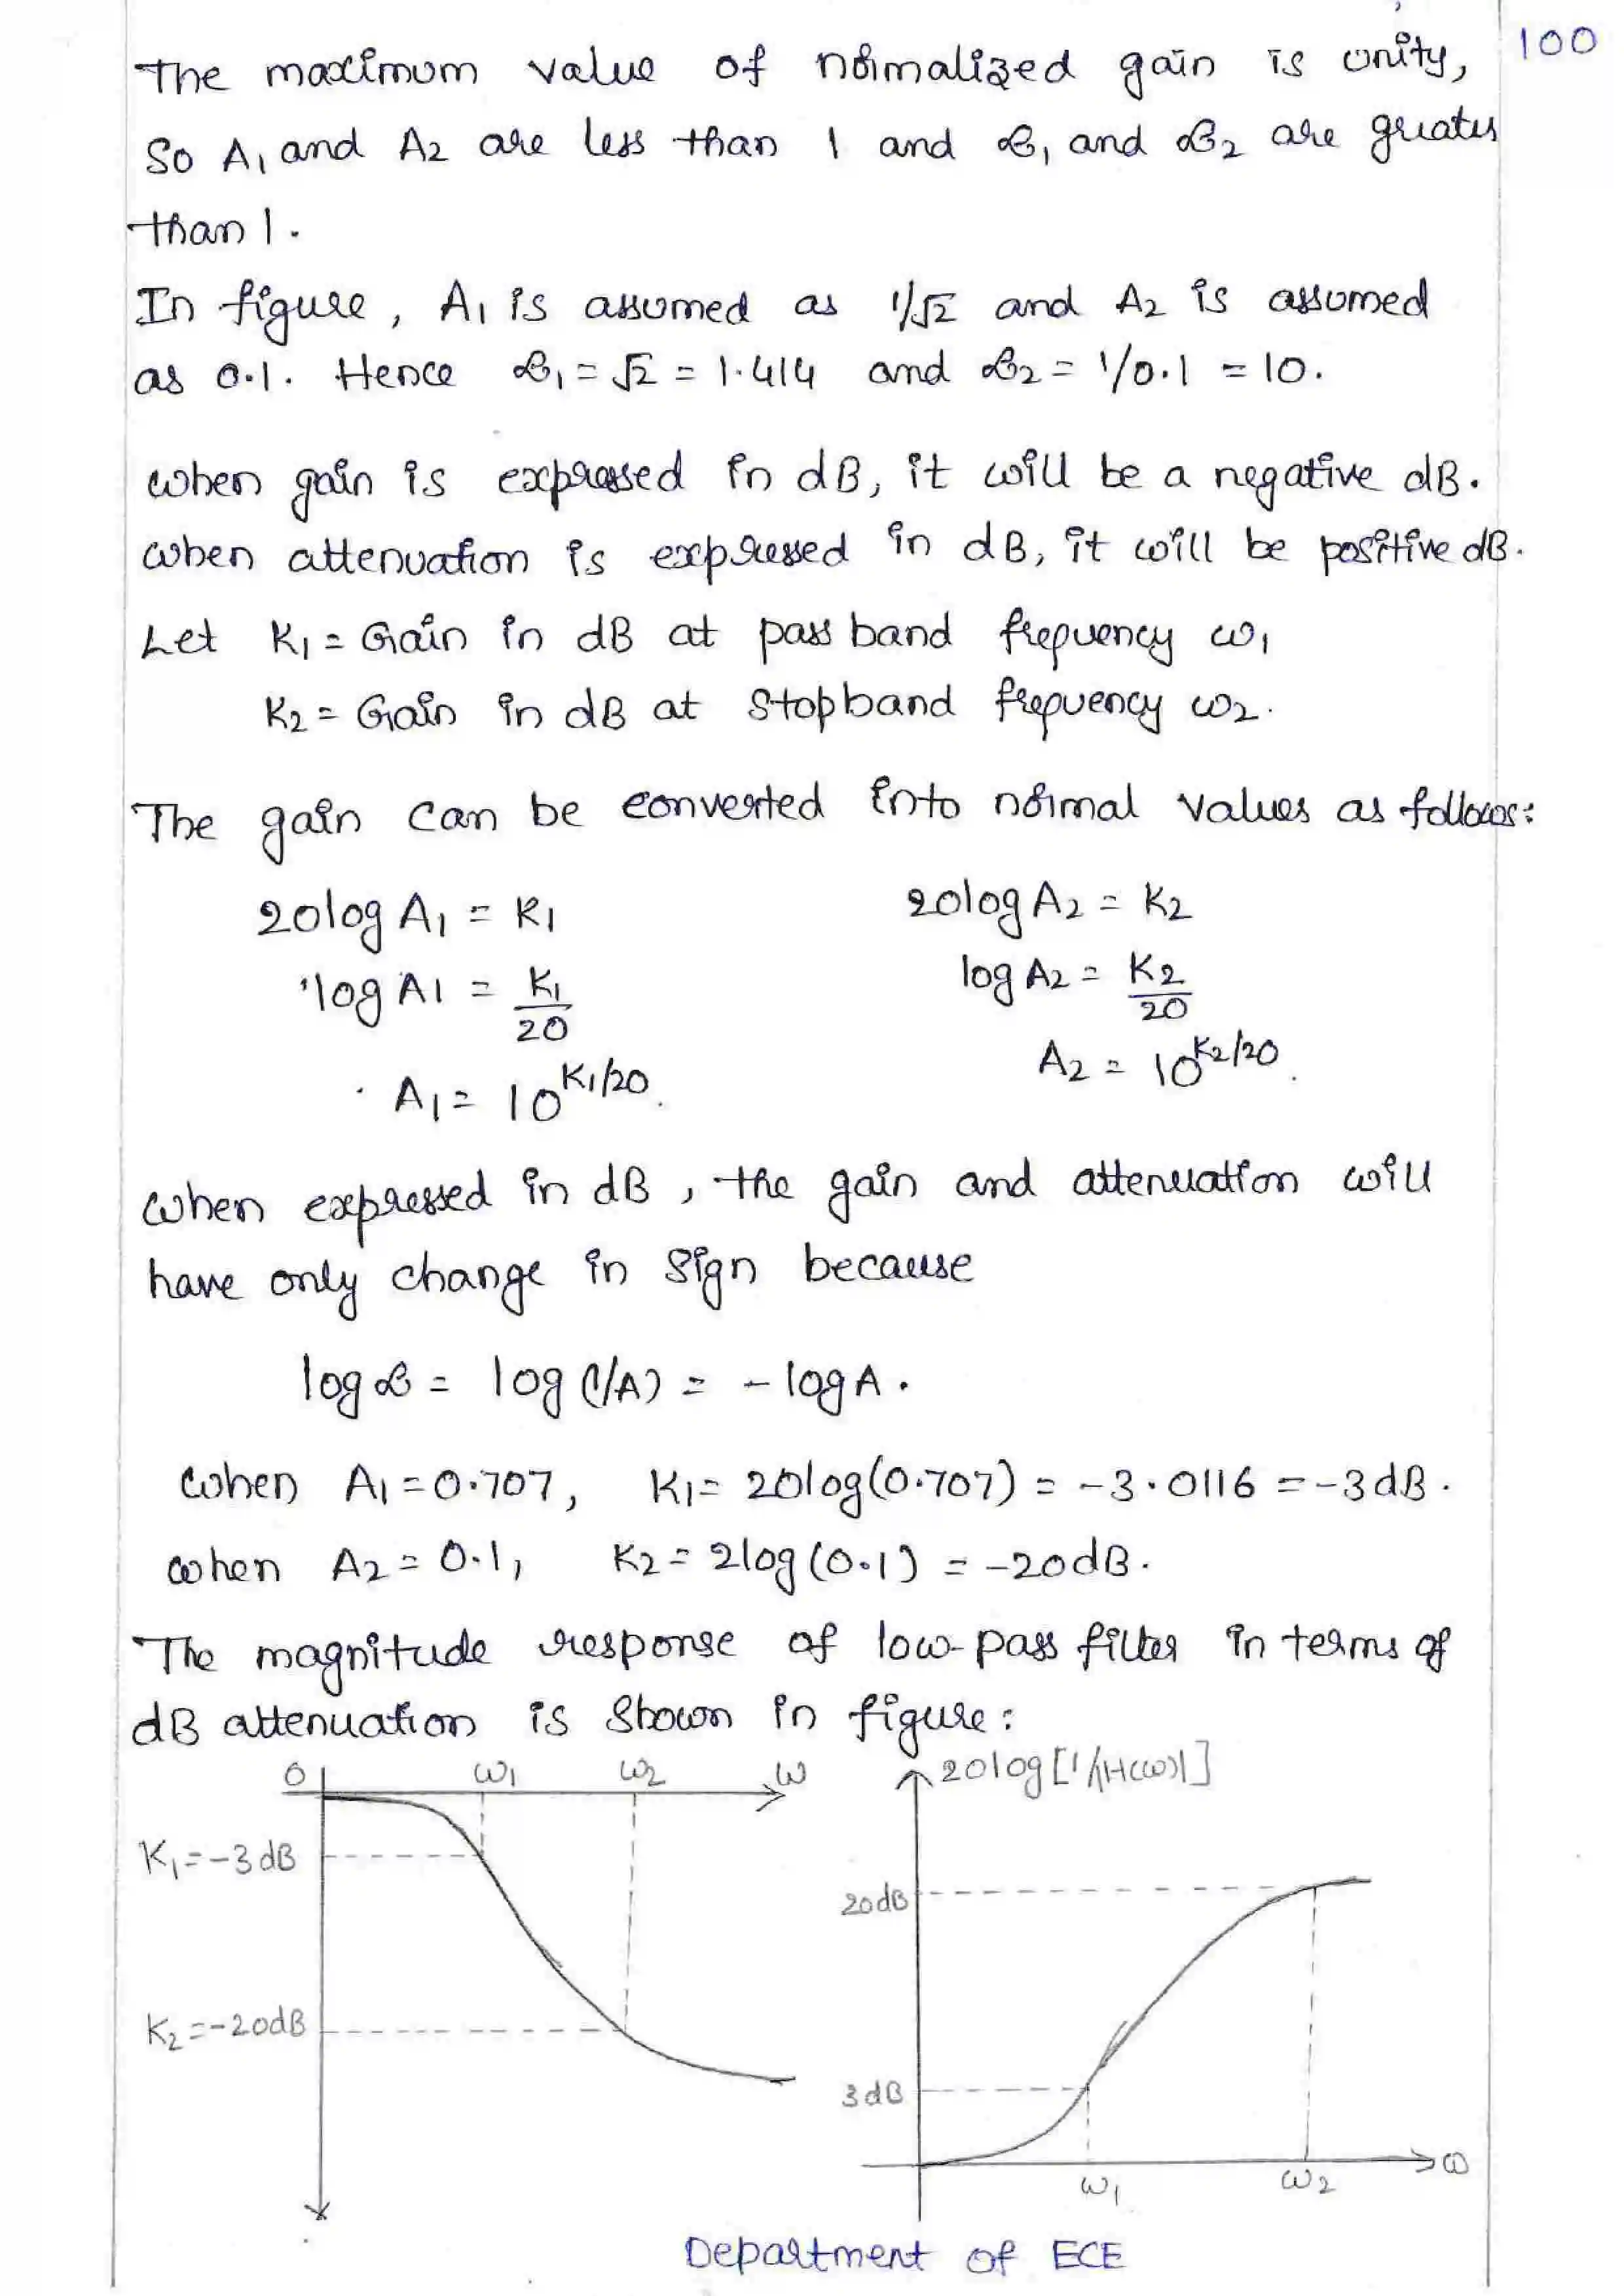 100
The maximum value of normalized gain is unity,
So A₁ and A₂ are less than 1 and α₁ and α₂ are greater
than 1.
In figure, A₁ is assumed as 1/√2 and A₂ is assumed
as 0.1. Hence α₁ = √2 = 1.414 and α₂ = 1/0.1 = 10.
when gain is expressed in dB, it will be a negative dB.
when attenuation is expressed in dB, it will be positive dB.
Let K₁ = Gain in dB at pass band frequency ω₁
K₂ = Gain in dB at Stopband frequency ω₂.
The gain can be converted into normal values as follows:
20log A₁ = K₁ 20log A₂ = K₂
log A1 = K₁/20 log A₂ = K₂/20
A₁ = 10^K₁/20. A₂ = 10^K₂/20.
when expressed in dB, the gain and attenuation will
have only change in Sign because
log α = log (1/A) = -log A.
when A₁ = 0.707, K₁ = 20log(0.707) = -3.0116 = -3dB.
when A₂ = 0.1, K₂ = 2log(0.1) = -20dB.
The magnitude response of low-pass filter in terms of
dB attenuation is Shown in figure:
0 ω₁ ω₂ ω
K₁=-3dB
K₂=-20dB
20log[1/|H(ω)|]
20dB
3dB
ω₁ ω₂ ω
Department of ECE